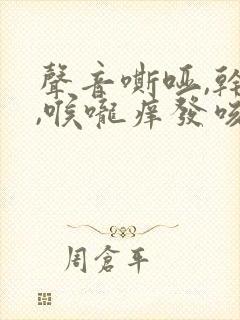 聲音嘶啞,幹
,喉嚨痒發咳
周倉平